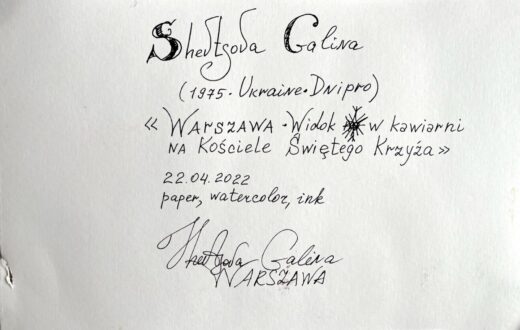 Shevtsova Galina
(1975 · Ukraine · Dnipro)
« Warszawa · Widok w kawiarni
na Kościele Świętego Krzyża »
22.04.2022
paper, watercolor, ink
Galina
WARSZAWA